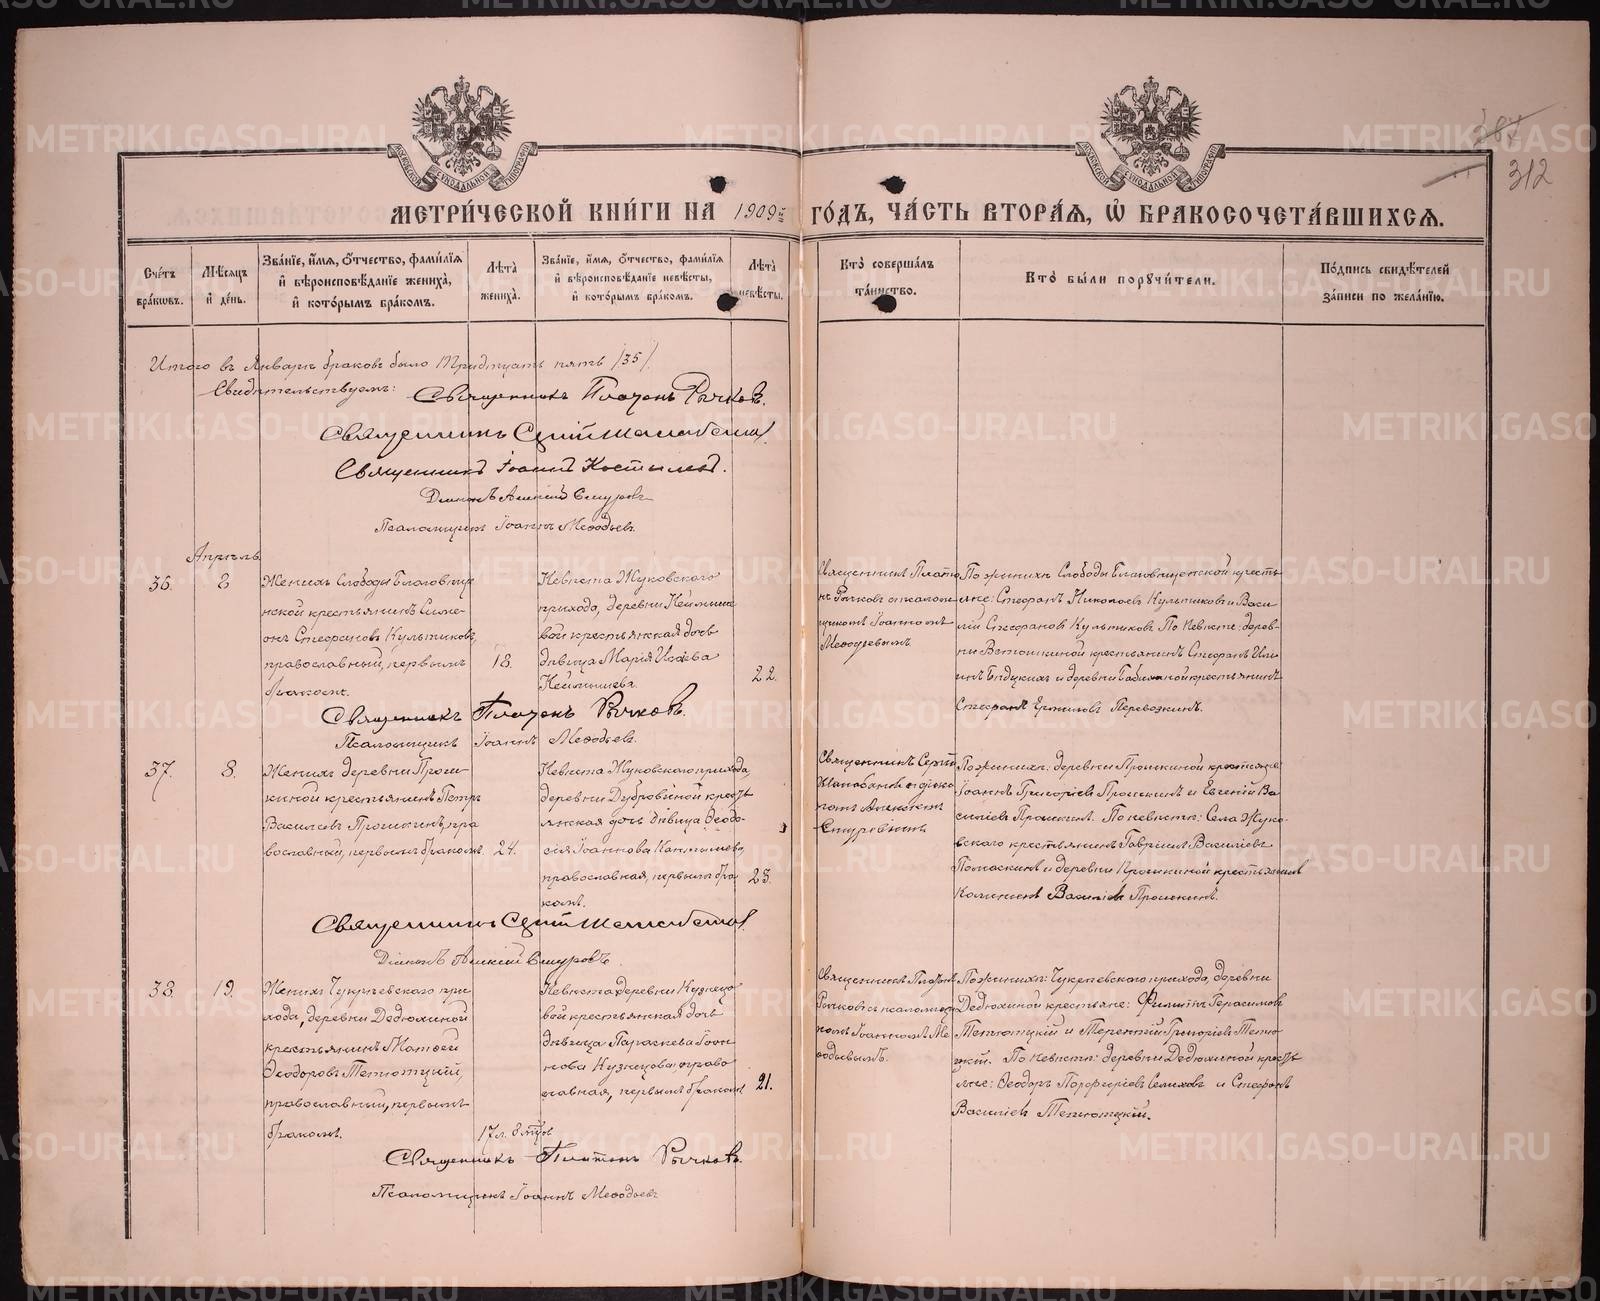 287
312
МЕТРИ́ЧЕСКОЙ КНИ́ГИ НА 1909й ГО́ДЪ, ЧА́СТЬ ВТОРА́Я, Ѡ БРАКОСОЧЕТА́ВШИХСЯ.
Сче́тъ бра́ковъ.
Мѣ́сяцъ и́ де́нь.
Зва́нїе, и́мя, о́тчество, фами́лїя и́ вѣроисповѣ́данїе жениха̀, и́ кото́рымъ бра́комъ.
Лѣ́та жениха̀.
Зва́нїе, и́мя, о́тчество, фами́лїя и́ вѣроисповѣ́данїе невѣ́сты, и́ кото́рымъ бра́комъ.
Лѣ́та невѣ́сты.
Кто̀ соверша́лъ та́инство.
Кто̀ бы́ли поручи́тели.
По́дпись свидѣ́телей за́писи по жела́нїю.
Итого въ Январѣ браковъ было Тридцать пять /35/.
Свидѣтельствуемъ: Священникъ Платонъ Рычковъ.
Священникъ
Священникъ Іоаннъ Костылевъ.
Діаконъ Алексій
Псаломщикъ Іоаннъ Меѳодьевъ.
Апрѣль.
36.
8
Женихъ Слободы Благовѣще-
нской крестьянинъ Симе-
онъ Стефановъ Культиковъ,
православный, первымъ
бракомъ.
18.
Невѣста Жуковского
прихода, деревни Неймыше-
вой крестьянская дочь
дѣвица Марія Исаева
Неймышева.
22.
Священникъ Плато-
нъ Рычковъ съ псалом-
щикомъ Іоанномъ
Меѳодьевымъ.
По женихѣ: Слободы Благовѣщенской кресть-
яне: Стефанъ Николаевъ Культиковъ и Васи-
лій Стефановъ Культиковъ. По невѣстѣ: дерев-
ни Ветошкиной крестьянинъ Стефанъ
и деревни крестьянинъ
Стефанъ Перевозкинъ.
Священникъ Платонъ Рычковъ.
Псаломщикъ Іоаннъ Меѳодьевъ.
37.
8.
Женихъ деревни Проши-
киной крестьянинъ Петръ
Василіевъ Прошкинъ, пра-
вославный, первымъ бракомъ.
24.
Невѣста Жуковского прихода,
деревни Дубровиной кресть-
янская дочь дѣвица Ѳеодо-
сія Іоаннова
православная, первымъ бра-
комъ.
23.
Священникъ Сергій
съ діако-
номъ Алексіемъ
По женихѣ: деревни Прошкиной крестьяне
Іоаннъ Григоріевъ Прошкинъ и Евгеній Ва-
силіевъ Прошкинъ. По невѣстѣ: Села Жуко-
вского крестьянинъ Гавріилъ Василіевъ
и деревни Прошкиной крестьянинъ
Василіевъ Прошкинъ.
Священникъ
Діаконъ Алексій
38.
19.
Женихъ Чукреевского при-
хода, деревни Дедюхиной
крестьянинъ Матѳей
Ѳеодоровъ Тетютцкій,
православный, первымъ
бракомъ.
17 л. 8 мѣс
Невѣста деревни Кузнецо-
вой крестьянская дочь
дѣвица Параскева Іоан-
нова Кузнецова, право-
славная, первымъ бракомъ
21.
Священникъ Платонъ
Рычковъ съ псаломщи-
комъ Іоанномъ Ме-
ѳодьевымъ.
По женихѣ: Чукреевского прихода, деревни
Дедюхиной крестьяне: Филиппъ Герасимовъ
Тетютцкій и Терентій Григоріевъ Тетю-
цкій. По невѣстѣ: деревни Дедюхиной кресть-
яне: Ѳеодоръ Порфиріевъ Селиховъ и Стефанъ
Василіевъ Тетютцкій.
Священникъ Платонъ Рычковъ.
Псаломщикъ Іоаннъ Меѳодьевъ
METRIKI.GASO-URAL.RU